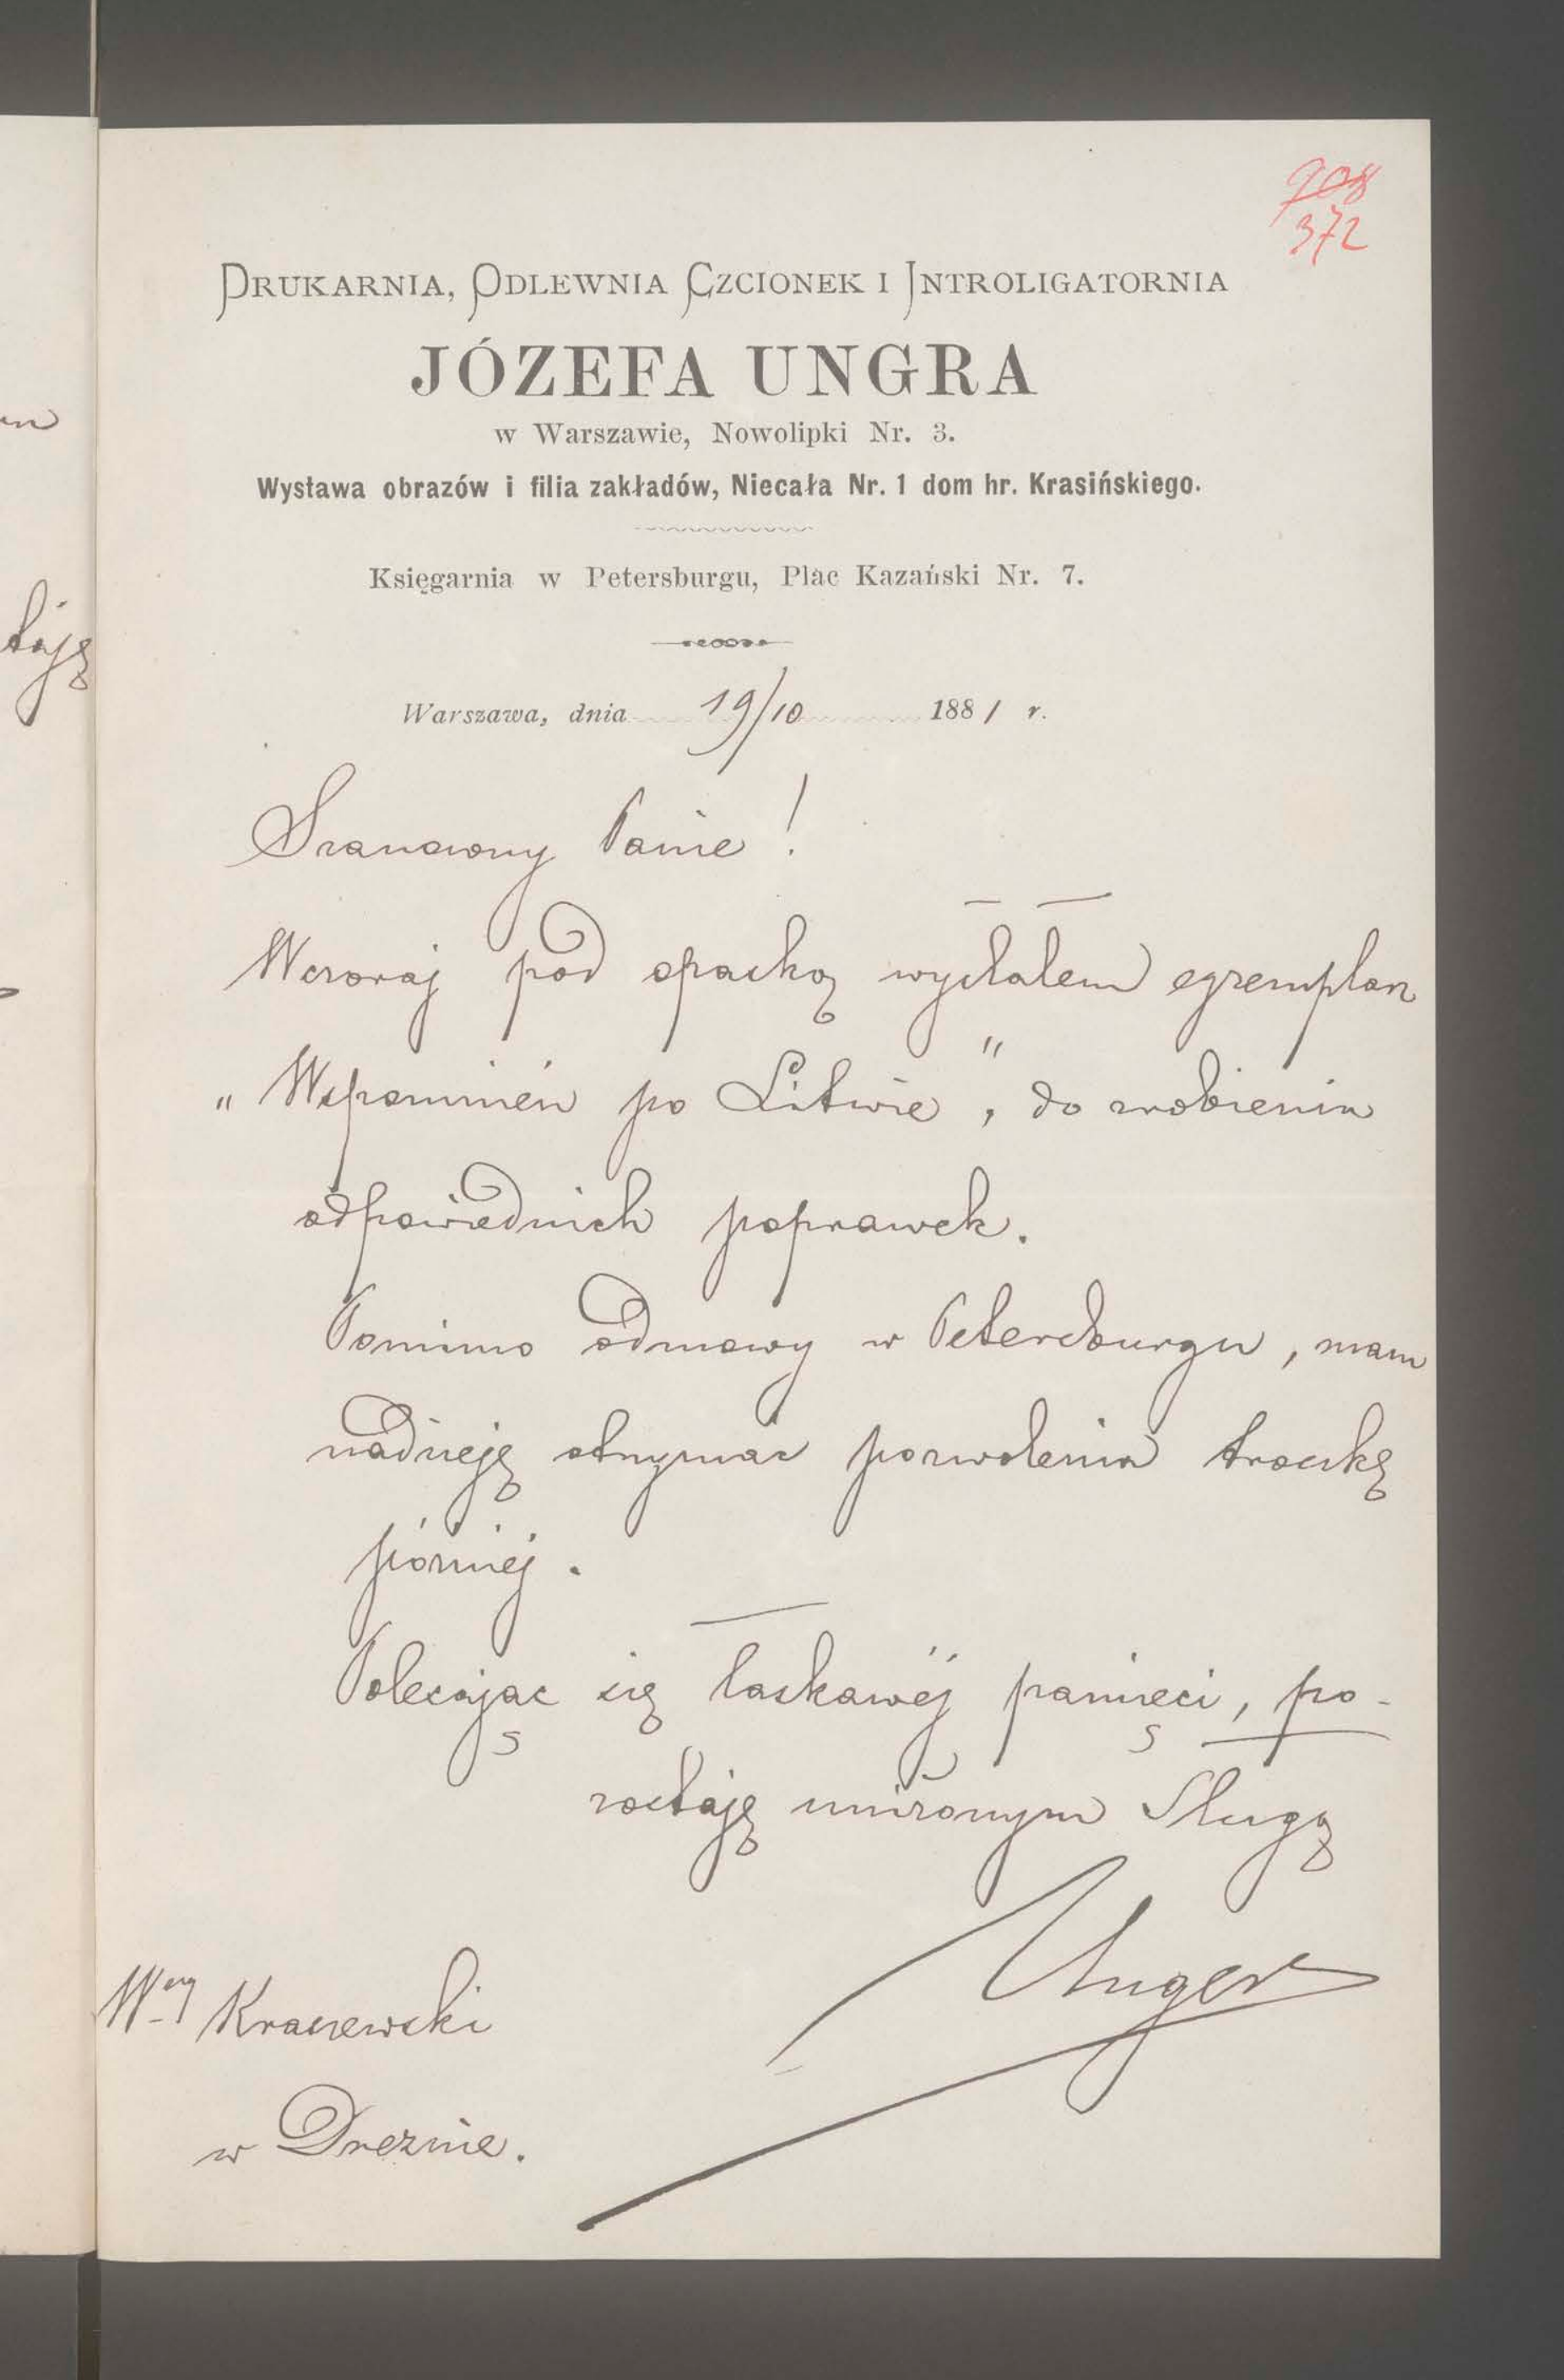 908
372
Drukarnia, Odlewnia Czcionek i Introligatornia
JÓZEFA UNGRA
w Warszawie, Nowolipki Nr. 3.
Wystawa obrazów i filia zakładów, Niecała Nr. 1 dom hr. Krasińskiego.
Księgarnia w Petersburgu, Plac Kazański Nr. 7.
Warszawa, dnia 19/10 1881 r.
Szanowny Panie!
Wczoraj pod opaską wysłałem egzemplarz
„Wspomnień po Litwie", do zrobienia
odpowiednich poprawek.
Pomimo odmowy w Petersburgu, mam
nadzieję otrzymać pozwolenia troszkę
później.
Polecając się łaskawéj pamięci, po-
zostaję uniżonym Sługą
Unger
Wny Kraszewski
w Dreznie.
tają